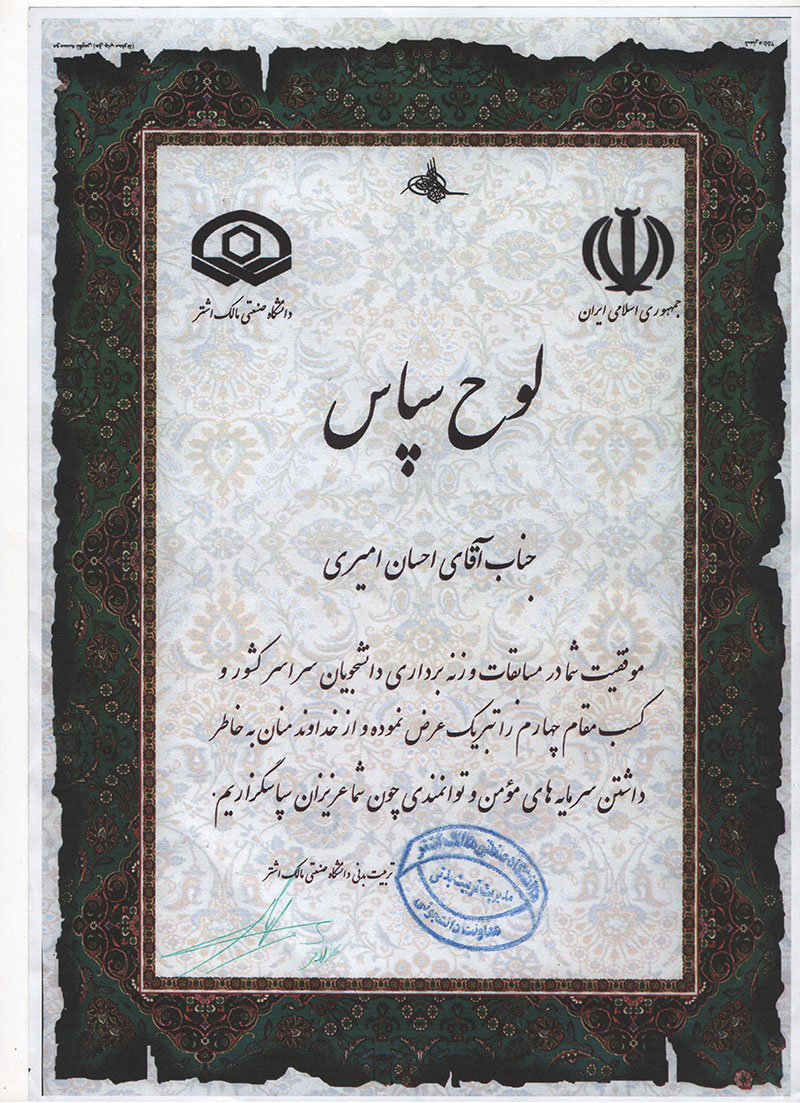 جمهوری اسلامی ایران
دانشگاه صنعتی مالک اشتر
لوح سپاس
جناب آقای احسان امیری
موفقیت شما در مسابقات وزنه برداری دانشجویان سراسر کشور و
کسب مقام چهارم را تبریک عرض نموده و از خداوند منان به خاطر
داشتن سرمایه های مؤمن و توانمندی چون شما عزیزان سپاسگزاریم.
تربیت بدنی دانشگاه صنعتی مالک اشتر
دانشگاه صنعتی مالک اشتر
مدیریت تربیت بدنی
معاونت دانشجوئی